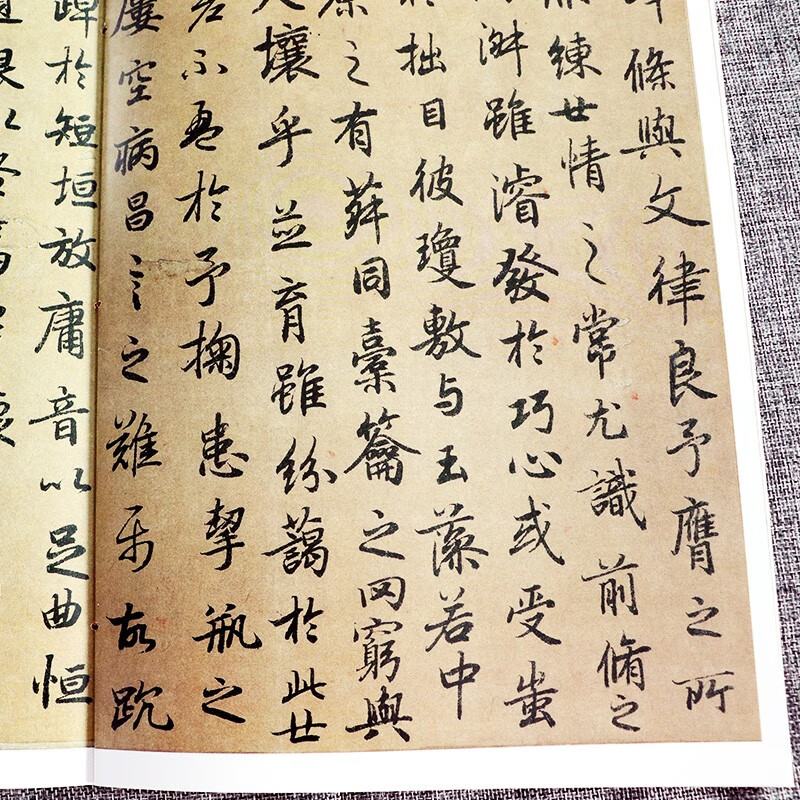 條與文律良予膺之所
練世情之常尤識前脩之
淑雖濬發於巧心或受蚩
於拙目彼瓊敷与玉藻若中
原之有菽同橐籥之罔窮與
天壤乎並育雖紛藹於此世
不盈於予掬患挈瓶之
屢空病昌言之難属故踸
踔於短垣放庸音以足曲恒
恨以終